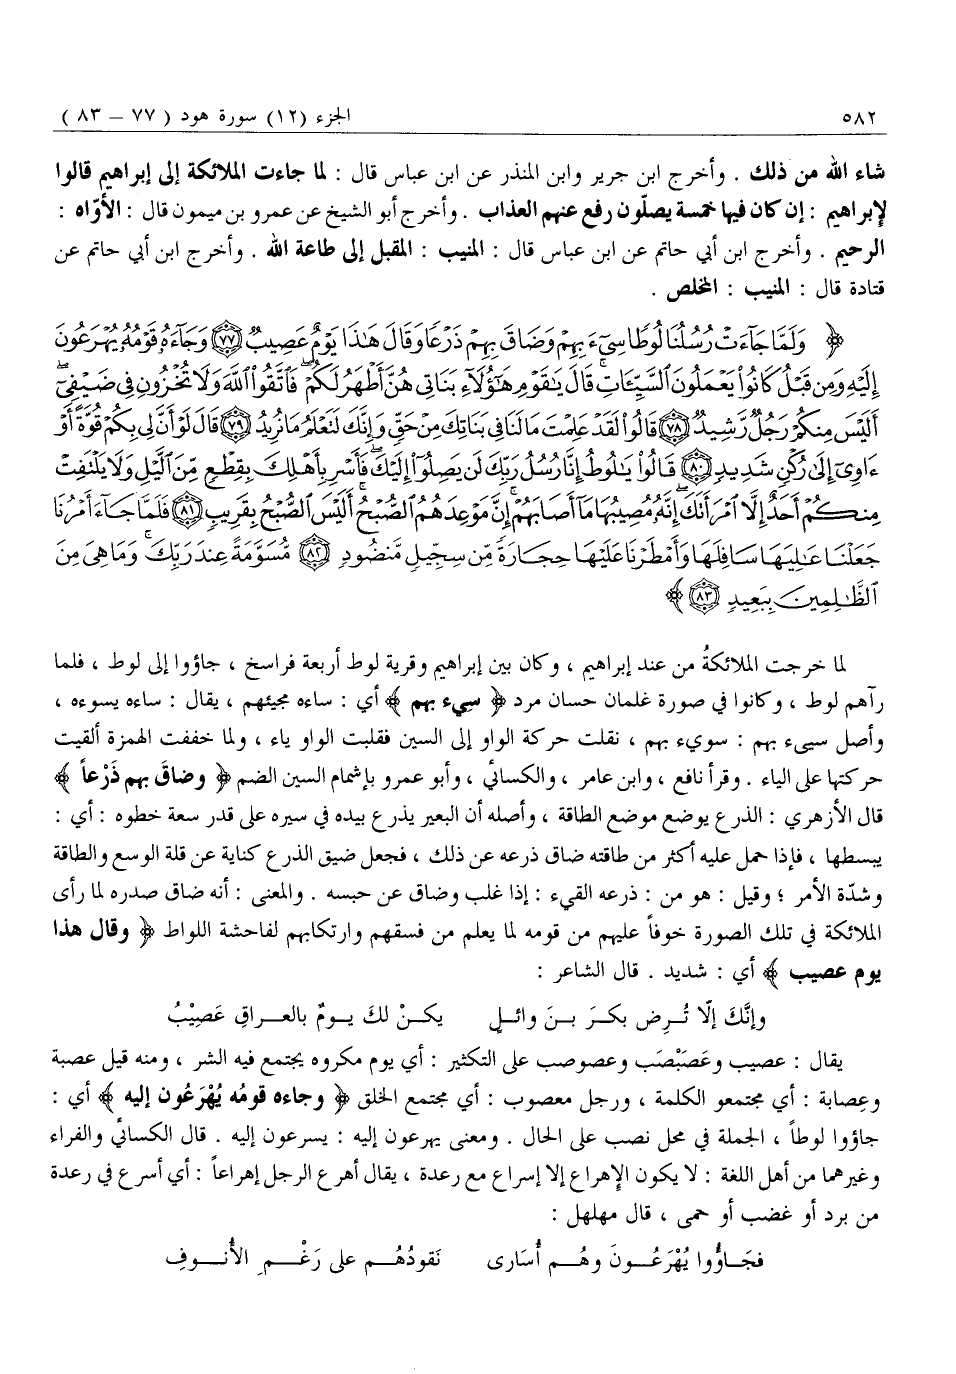 ٥٨٢ الجزء (١٢) سورة هود ( ٧٧ – ٨٣ )
شاء الله من ذلك . وأخرج ابن جرير وابن المنذر عن ابن عباس قال : لما جاءت الملائكة إلى إبراهيم قالوا
لإبراهيم : إن كان فيها خمسة يصلّون رفع عنهم العذاب . وأخرج أبو الشيخ عن عمرو بن ميمون قال : الأوّاه :
الرحيم . وأخرج ابن أبي حاتم عن ابن عباس قال : المنيب : المقبل إلى طاعة الله . وأخرج ابن أبي حاتم عن
قتادة قال : المنيب : المخلص .
﴿ وَلَمَّا جَآءَتْ رُسُلُنَا لُوطًا سِىٓءَ بِهِمْ وَضَاقَ بِهِمْ ذَرْعًا وَقَالَ هَٰذَا يَوْمٌ عَصِيبٌ ﴿٧٧﴾ وَجَآءَهُۥ قَوْمُهُۥ يُهْرَعُونَ
إِلَيْهِ وَمِن قَبْلُ كَانُوا۟ يَعْمَلُونَ ٱلسَّيِّـَٔاتِ ۚ قَالَ يَٰقَوْمِ هَٰٓؤُلَآءِ بَنَاتِى هُنَّ أَطْهَرُ لَكُمْ ۖ فَٱتَّقُوا۟ ٱللَّهَ وَلَا تُخْزُونِ فِى ضَيْفِىٓ ۖ
أَلَيْسَ مِنكُمْ رَجُلٌ رَّشِيدٌ ﴿٧٨﴾ قَالُوا۟ لَقَدْ عَلِمْتَ مَا لَنَا فِى بَنَاتِكَ مِنْ حَقٍّ وَإِنَّكَ لَتَعْلَمُ مَا نُرِيدُ ﴿٧٩﴾ قَالَ لَوْ أَنَّ لِى بِكُمْ قُوَّةً أَوْ
ءَاوِىٓ إِلَىٰ رُكْنٍ شَدِيدٍ ﴿٨٠﴾ قَالُوا۟ يَٰلُوطُ إِنَّا رُسُلُ رَبِّكَ لَن يَصِلُوٓا۟ إِلَيْكَ ۖ فَأَسْرِ بِأَهْلِكَ بِقِطْعٍ مِّنَ ٱلَّيْلِ وَلَا يَلْتَفِتْ
مِنكُمْ أَحَدٌ إِلَّا ٱمْرَأَتَكَ ۖ إِنَّهُۥ مُصِيبُهَا مَآ أَصَابَهُمْ ۚ إِنَّ مَوْعِدَهُمُ ٱلصُّبْحُ ۚ أَلَيْسَ ٱلصُّبْحُ بِقَرِيبٍ ﴿٨١﴾ فَلَمَّا جَآءَ أَمْرُنَا
جَعَلْنَا عَٰلِيَهَا سَافِلَهَا وَأَمْطَرْنَا عَلَيْهَا حِجَارَةً مِّن سِجِّيلٍ مَّنضُودٍ ﴿٨٢﴾ مُّسَوَّمَةً عِندَ رَبِّكَ ۖ وَمَا هِىَ مِنَ
ٱلظَّٰلِمِينَ بِبَعِيدٍ ﴿٨٣﴾ ﴾
لما خرجت الملائكةُ من عند إبراهيم ، وكان بين إبراهيم وقرية لوط أربعة فراسخ ، جاؤوا إلى لوط ، فلما
رآهم لوط ، وكانوا في صورة غلمان حسان مرد ﴿ سِيء بهم ﴾ أي : ساءه مجيئهم ، يقال : ساءه يسوءه ،
وأصل سيىء بهم : سويء بهم ، نقلت حركة الواو إلى السين فقلبت الواو ياء ، ولما خففت الهمزة ألقيت
حركتها على الياء . وقرأ نافع ، وابن عامر ، والكسائي ، وأبو عمرو بإشمام السين الضم ﴿ وضاقَ بهم ذَرْعاً ﴾
قال الأزهري : الذرع يوضع موضع الطاقة ، وأصله أن البعير يذرع بيده في سيره على قدر سعة خطوه : أي :
يبسطها ، فإذا حمل عليه أكثر من طاقته ضاق ذرعه عن ذلك ، فجعل ضيق الذرع كناية عن قلة الوسع والطاقة
وشدّة الأمر ؛ وقيل : هو من : ذرعه القيء : إذا غلب وضاق عن حبسه . والمعنى : أنه ضاق صدره لما رأى
الملائكة في تلك الصورة خوفاً عليهم من قومه لما يعلم من فسقهم وارتكابهم لفاحشة اللواط ﴿ وقال هذا
يوم عصيب ﴾ أي : شديد . قال الشاعر :
وإنَّكَ إلّا تُرضِ بكرَ بنَ وائلٍ يكنْ لكَ يومٌ بالعراقِ عَصِيْبُ
يقال : عصيب وعَصَبْصَب وعصوصب على التكثير : أي يوم مكروه يجتمع فيه الشر ، ومنه قيل عصبة
وعِصابة : أي مجتمعو الكلمة ، ورجل معصوب : أي مجتمع الخلق ﴿ وجاءه قومُه يُهْرَعُون إليه ﴾ أي :
جاؤوا لوطاً ، الجملة في محل نصب على الحال . ومعنى يهرعون إليه : يسرعون إليه . قال الكسائي والفراء
وغيرهما من أهل اللغة : لا يكون الإهراع إلا إسراع مع رعدة ، يقال أهرع الرجل إهراعاً : أي أسرع في رعدة
من برد أو غضب أو حمى ، قال مهلهل :
فجَاؤُوا يُهْرَعُونَ وهُم أُسَارى نَقودُهُم على رَغْمِ الأُنوفِ